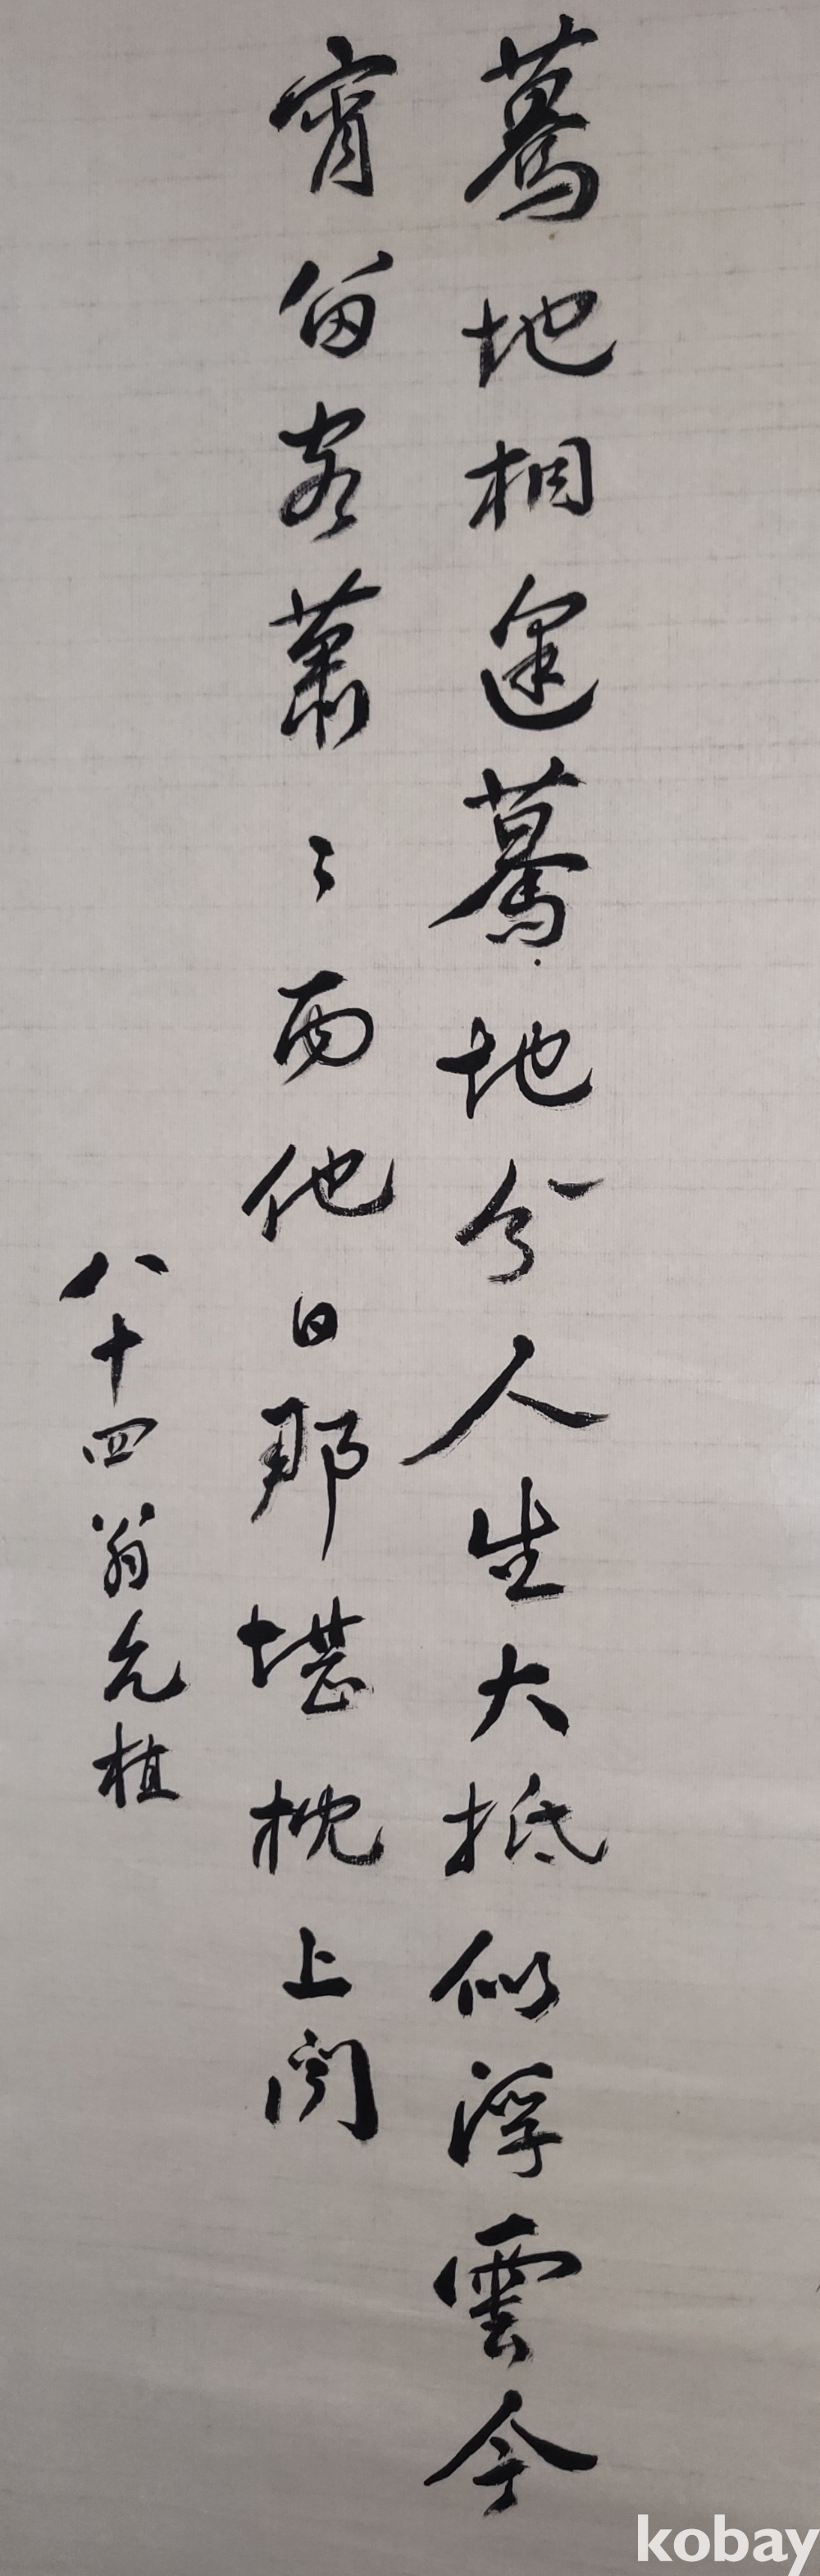 驀地相逢驀地分人生大抵似浮雲今
宵留客蕭〻雨他日那堪枕上聞
八十四翁允植
kobay